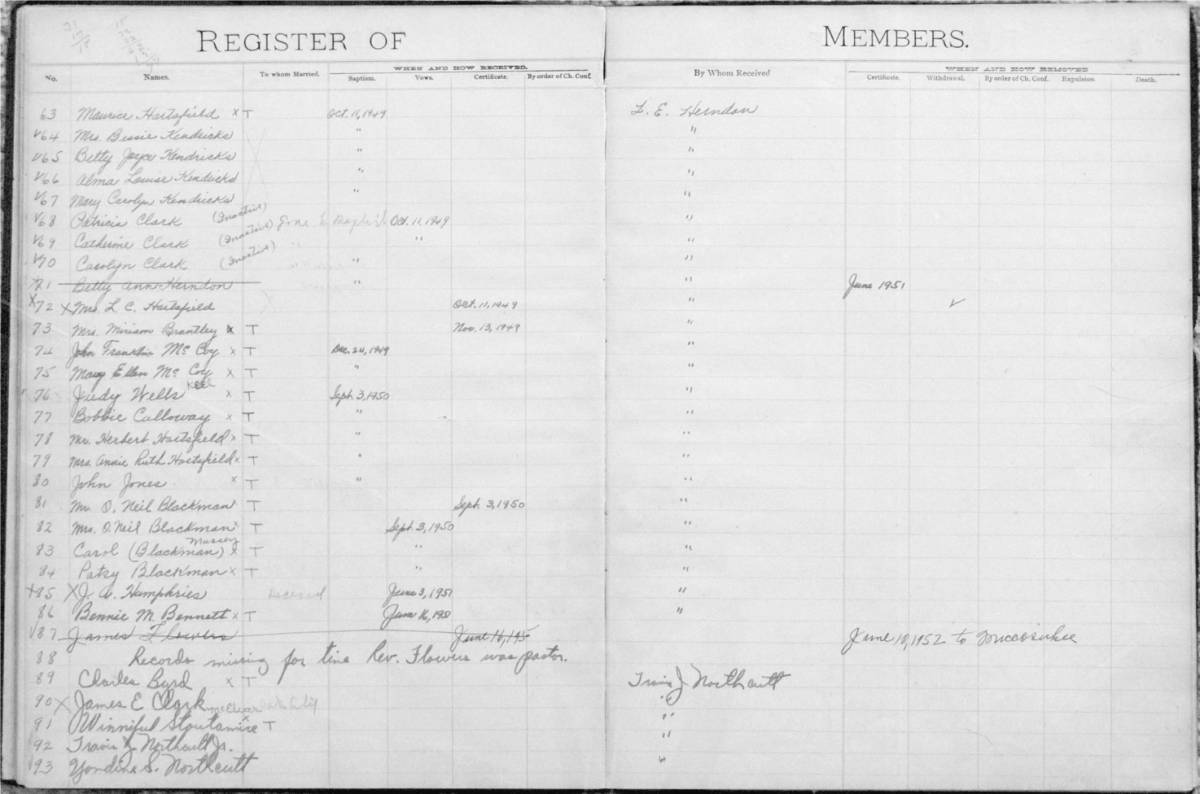 REGISTER OF MEMBERS.
WHEN AND HOW RECEIVED. WHEN AND HOW REMOVED
No. Names. To whom Married. Baptism. Vows. Certificate. By order of Ch. Conf. By Whom Received Certificate. Withdrawal. By order of Ch. Conf. Expulsion. Death.
63 Maurice Hartsfield x T Oct. 11, 1949 L. E. Herndon
√64 Mrs. Bessie Kendricks " "
√65 Betty Joyce Kendricks " "
√66 Alma Louise Kendricks " "
√67 Mary Carolyn Kendricks " "
√68 Patricia Clark (Inactive) Gone to Baptist Oct. 11, 1949 "
√69 Catherine Clark (Inactive) " " "
√70 Carolyn Clark (Inactive) " "
X71 Betty Ann Herndon " " June 1951
X72 X Mrs. L. C. Hartsfield Oct. 11, 1949 " √
73 Mrs. Miriam Brantley x T Nov. 13, 1949 "
74 John Franklin McCoy x T Dec. 24, 1949 "
75 Mary Ellen McCoy x T " "
76 Judy Wells x T Sept. 3, 1950 "
77 Bobbie Calloway x T " "
78 Mr. Herbert Hartsfield x T " "
79 Mrs. Annie Ruth Hartsfield x T " "
80 John Jones x T " "
81 Mr. O. Neil Blackman T Sept. 3, 1950 "
82 Mrs. O. Neil Blackman T Sept. 3, 1950 "
Massey
83 Carol (Blackman) x T " "
84 Patsy Blackman x T " "
X85 X J. W. Humphries Deceased June 3, 1951 "
86 Bennie M. Bennett x T June 16, 1951 "
√87 James Flowers June 16, 195 June 10, 1952 to Miccosukee
88 Records missing for time Rev. Flowers was pastor.
89 Charles Byrd x T Travis J Northcutt
90 X James E Clark "
91 Winniful Stoutamire x T "
92 Travis J. Northcutt Jr. "
√93 S. Northcutt "